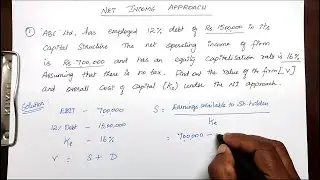 NET INCOME APPROACH
① ABC Ltd, has employed 12% debt of Rs 1500000 in its
Capital Structure. The net operating income of firm
is Rs 700,000 and has an equity capitalisation rate is 16%
Assuming that there is no tax. Find out the value of the firm [V]
and overall Cost of capital (Ko) under the NI approach.
Solution
EBIT - 700,000
S = Earnings available to Sh. holders
Ke
12% Debt - 15,00,000
Ke - 16%
= 700,000 -
V = S + D